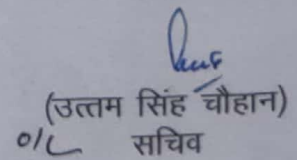 (उत्तम सिंह चौहान)
o/c सचिव